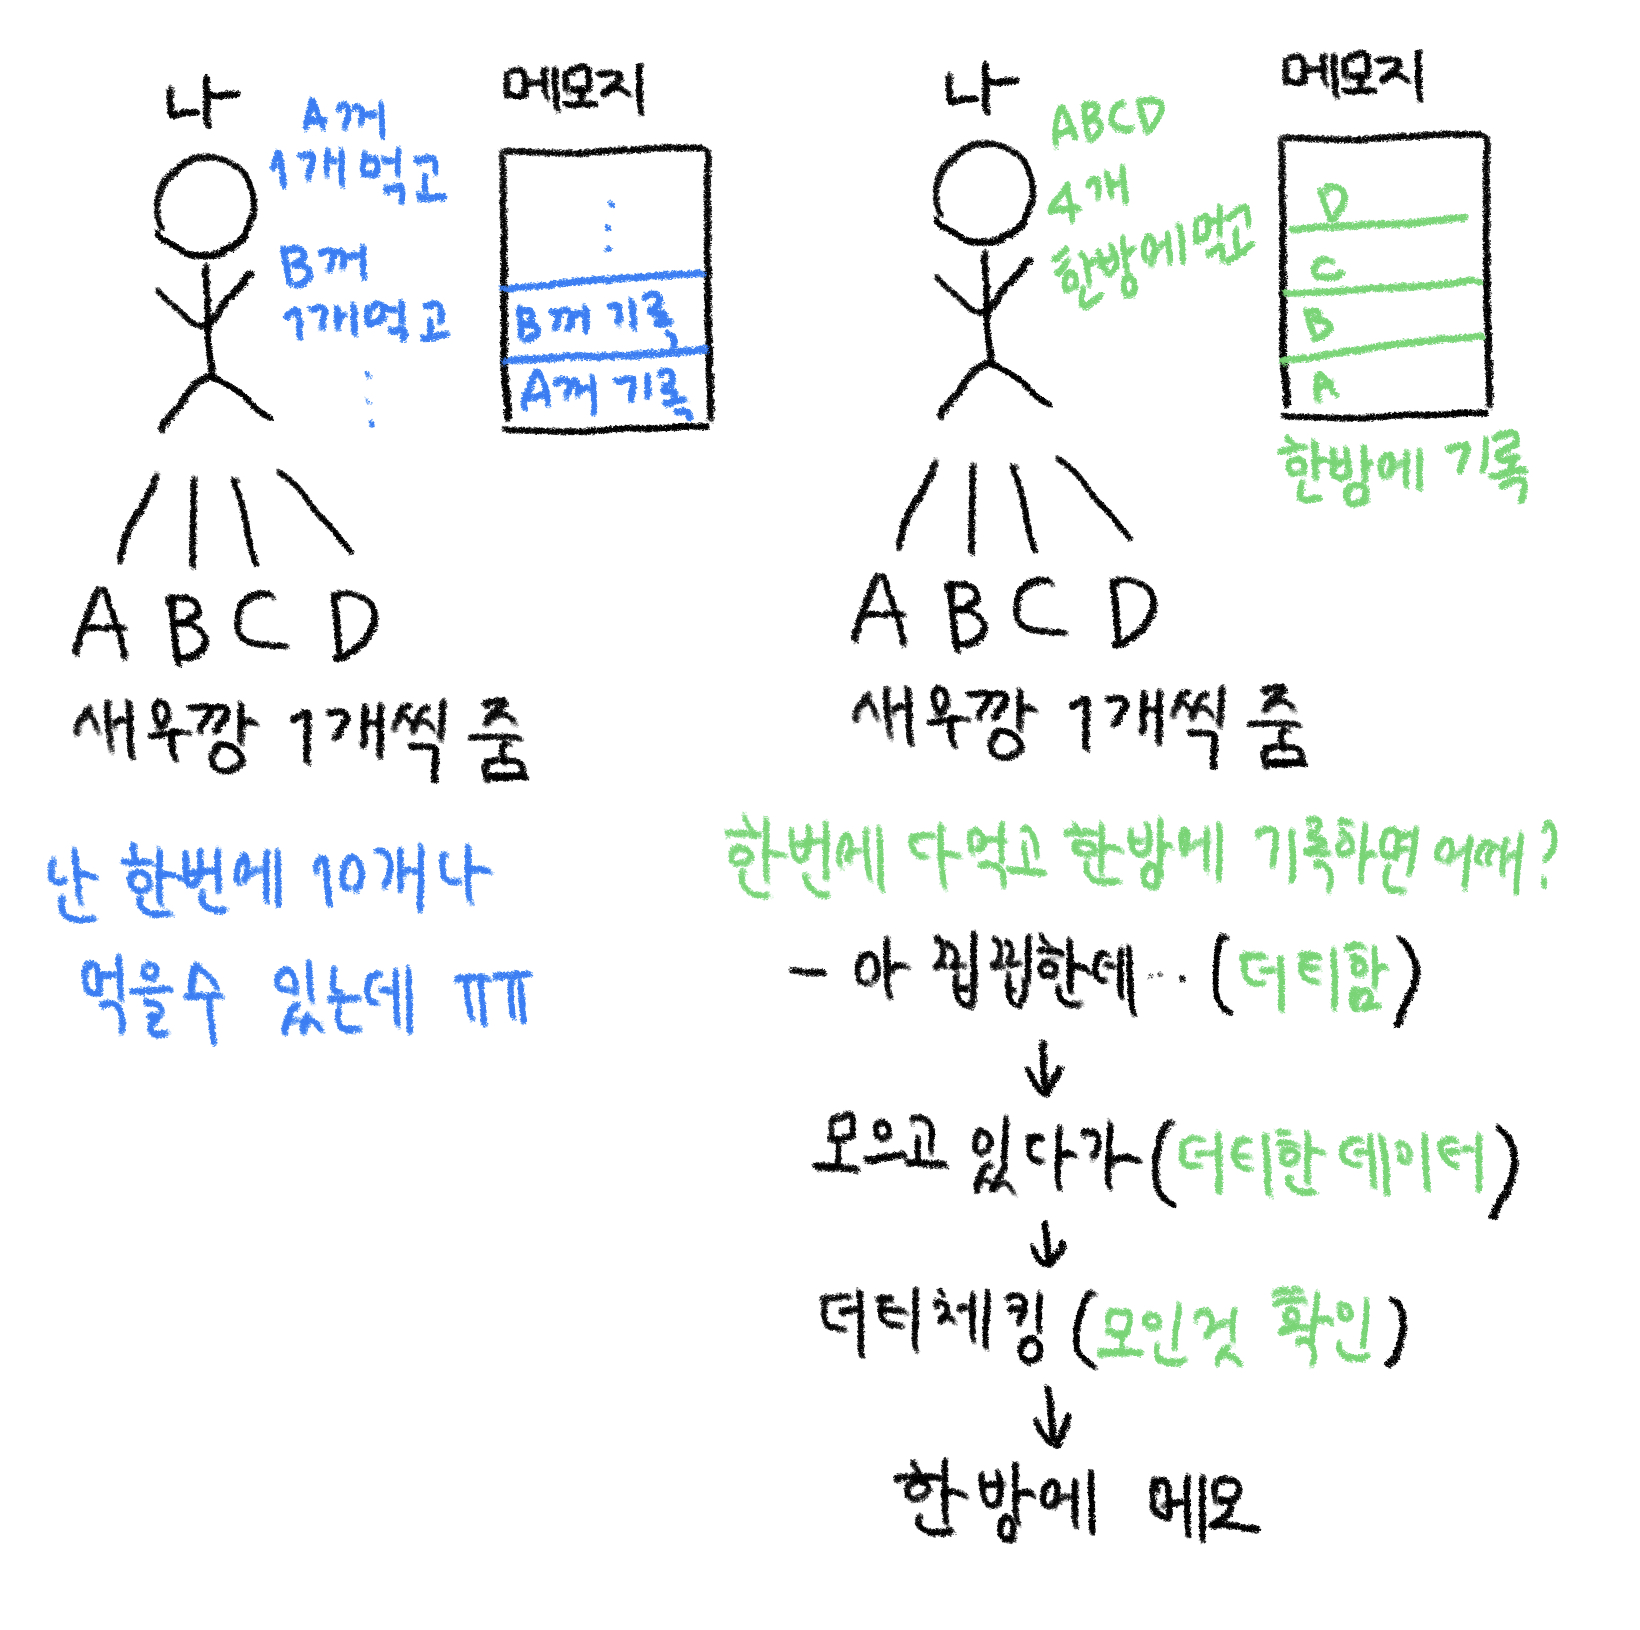 나
A꺼
1개 먹고
B꺼
1개먹고
메모지
B꺼 기록
A꺼 기록
A B C D
새우깡 1개씩 줌
난 한번에 10개나
먹을수 있는데 ㅠㅠ
나
ABCD
4개
한방에먹고
메모지
D
C
B
A
한방에 기록
A B C D
새우깡 1개씩 줌
한번에 다먹고 한방에 기록하면 어때?
- 아 찝찝한데... (더티함)
↓
모으고 있다가(더티한 데이터)
↓
더티체킹 (모인것 확인)
↓
한방에 메모